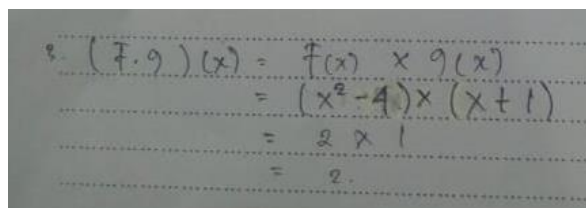 3. (F.g)(x) = F(x) x g(x)
= (x² - 4) x (x + 1)
= 2 x 1
= 2.